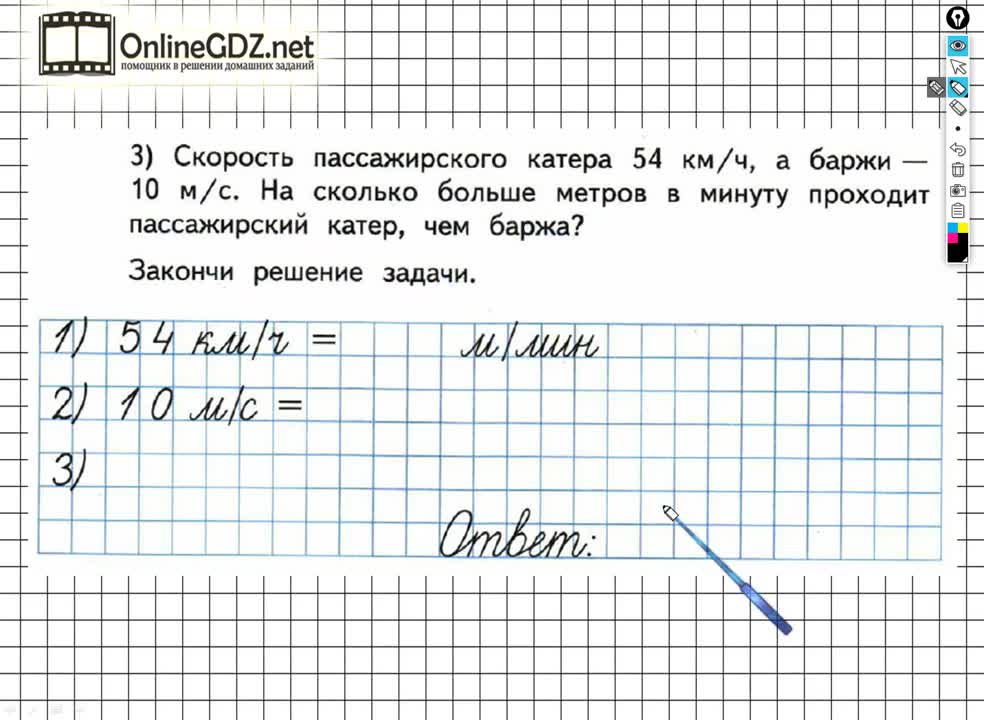 OnlineGDZ.net
помощник в решении домашних заданий
3) Скорость пассажирского катера 54 км/ч, а баржи —
10 м/с. На сколько больше метров в минуту проходит
пассажирский катер, чем баржа?
Закончи решение задачи.
1) 54 км/ч = м/мин
2) 10 м/с =
3)
Ответ: